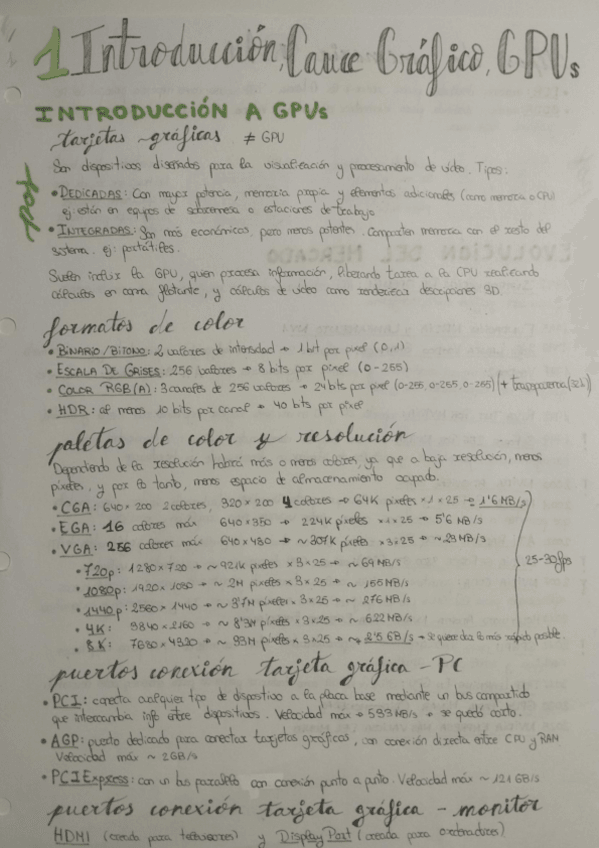 1 Introducción, Cauce Gráfico, GPUs
INTRODUCCIÓN A GPUs
tarjetas gráficas ≠ GPU
Son dispositivos diseñados para la visualización y procesamiento de vídeo. Tipos:
• DEDICADAS: Con mayor potencia, memoria propia y elementos adicionales (como memoria o CPU)
ej: están en equipos de sobremesa o estaciones de trabajo
• INTEGRADAS: Son más económicas, pero menos potentes. Comparten memoria con el resto del
sistema. ej: portátiles.
Suelen incluir la GPU, quien procesa información, liberando tarea a la CPU realizando
cálculos en coma flotante, y cálculos de vídeo como renderizar descripciones 3D.
formatos de color
• BINARIO/BITONO: 2 valores de intensidad → 1 bit por pixel (0,1)
• ESCALA DE GRISES: 256 valores → 8 bits por píxel (0-255)
• COLOR RGB(A): 3 canales de 256 valores → 24 bits por pixel (0-255, 0-255, 0-255) (+ transparencia (32b))
• HDR: al menos 10 bits por canal → 40 bits por píxel
paletas de color y resolución
Dependiendo de la resolución habrá más o menos colores, ya que a baja resolución, menos
píxeles, y por lo tanto, menos espacio de almacenamiento ocupado.
• CGA: 640×200 2 colores, 320×200 4 colores → 64K píxeles × 1 × 25 → 1'6 MB/s
• EGA: 16 colores máx 640×350 → 224K píxeles × 1 × 25 → 5'6 MB/s
• VGA: 256 colores máx 640×480 → ~307K píxeles × 3 × 25 → ~23 MB/s
• 720p: 1280×720 → ~921K píxeles × 3 × 25 → ~69 MB/s
25-30fps
• 1080p: 1920×1080 → ~2M píxeles × 3 × 25 → ~156 MB/s
• 1440p: 2560×1440 → ~3'7M píxeles × 3 × 25 → ~276 MB/s
• 4K: 3840×2160 → ~8'3M píxeles × 3 × 25 → ~622 MB/s
• 8K: 7680×4320 → ~33M píxeles × 3 × 25 → ~2'5 GB/s → se queda lo más rápido posible.
puertos conexión tarjeta gráfica - PC
• PCI: conecta cualquier tipo de dispositivo a la placa base mediante un bus compartido
que intercambia info entre dispositivos. Velocidad máx → 533 MB/s → se quedó corto.
• AGP: puerto dedicado para conectar tarjetas gráficas, con conexión directa entre CPU y RAM
Velocidad máx ~ 2GB/s
• PCI Express: con un bus paralelo con conexión punto a punto. Velocidad máx ~ 121 GB/s
puertos conexión tarjeta gráfica - monitor
HDMI (creada para televisores) y DisplayPort (creada para ordenadores)